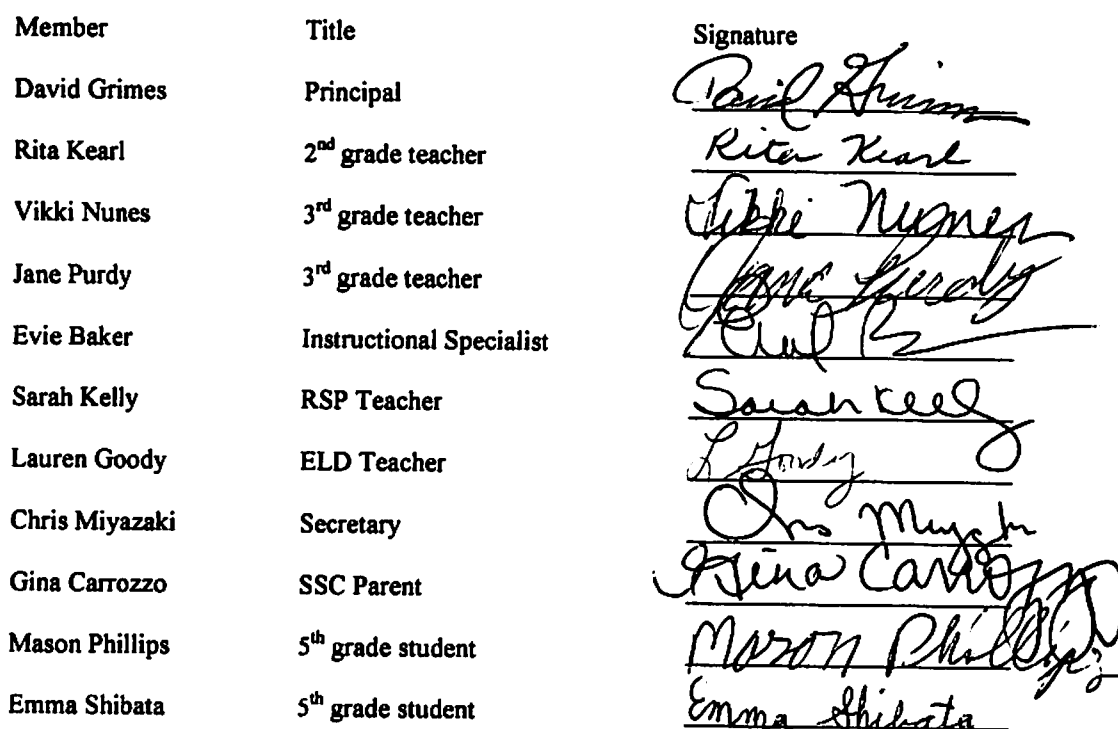 Member Title Signature
David Grimes Principal
Rita Kearl 2nd grade teacher Rita Kearl
Vikki Nunes 3rd grade teacher Vikki
Jane Purdy 3rd grade teacher Jane Purdy
Evie Baker Instructional Specialist
Sarah Kelly RSP Teacher Sarah Kelly
Lauren Goody ELD Teacher L Goody
Chris Miyazaki Secretary
Gina Carrozzo SSC Parent Gina Carrozzo
Mason Phillips 5th grade student Mason Phillips
Emma Shibata 5th grade student Emma Shibata